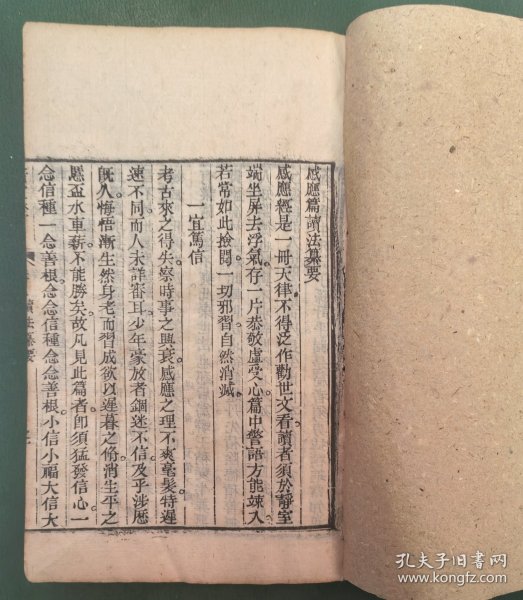 感應篇讀法纂要
感應經是一冊天律不得泛作勸世文看讀者須於靜室
端坐屏去浮氣存一片恭敬虛受心篇中警語方能竦入
若常如此撿閱一切邪習自然消滅
一宜篤信
考古來之得失察時事之興衰感應之理不爽毫髮特遲
速不同而人未詳審耳少年豪放者錮迷不信及乎涉歷
既久悔悟漸生然身老而習成欲以遲暮之脩消生平之
愆盃水車薪不能勝矣故凡見此篇者即須猛發信心一
念信種一念善根念念信種念念善根小信小福大信大
讀法纂要
孔夫子旧书网
www.kongfz.com